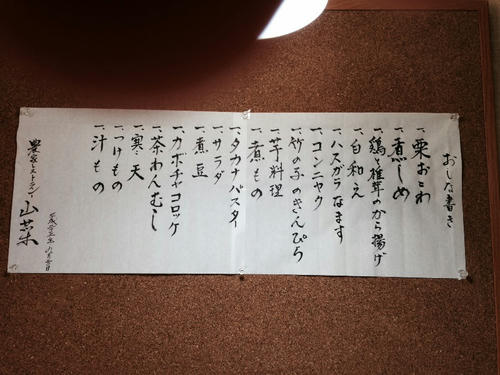 おしな書き
一、栗おこわ
一、煮しめ
一、鶏と椎茸のから揚げ
一、白和え
一、ハスガラなます
一、コンニャク
一、竹の子のきんぴら
一、芋料理
一、煮もの
一、タカナパスター
一、サラダ
一、煮豆
一、カボチャコロッケ
一、茶わんむし
一、寒天
一、つけもの
一、汁もの
農家レストラン 山菜